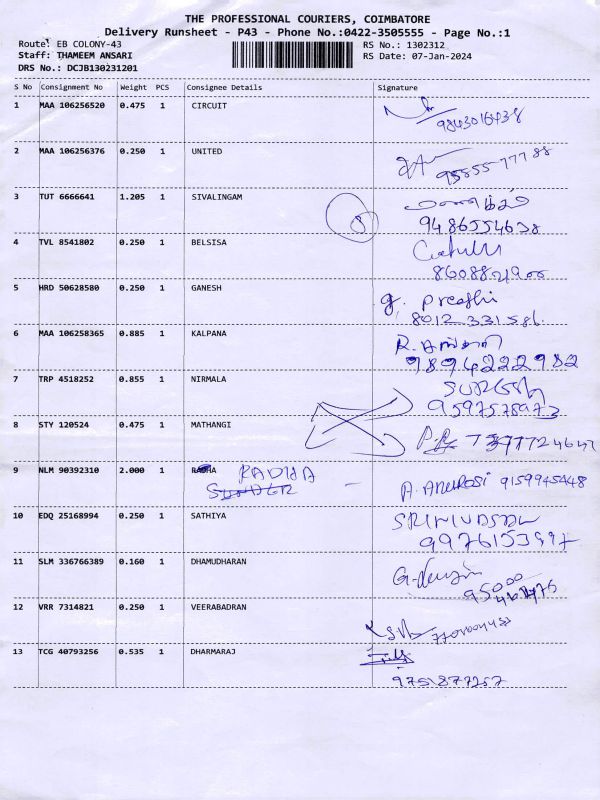 THE PROFESSIONAL COURIERS, COIMBATORE
Delivery Runsheet - P43 - Phone No.:0422-3505555 - Page No.:1
Route: EB COLONY-43 RS No.: 1302312
Staff: THAMEEM ANSARI RS Date: 07-Jan-2024
DRS No.: DCJB130231201
S No Consignment No Weight PCS Consignee Details Signature
1 MAA 106256520 0.475 1 CIRCUIT
9843016438
2 MAA 106256376 0.250 1 UNITED
95855-77788
3 TUT 6666641 1.205 1 SIVALINGAM 8
9486554638
4 TVL 8541802 0.250 1 BELSISA
5 HRD 50628580 0.250 1 GANESH g. Preethi
8012331586
6 MAA 106258365 0.885 1 KALPANA
9894222982
7 TRP 4518252 0.855 1 NIRMALA SURESH
9597578973
8 STY 120524 0.475 1 MATHANGI
9 NLM 90392310 2.000 1 RADHA RADHA
SUNDER A. Anurosi 9159945448
10 EDQ 25168994 0.250 1 SATHIYA SRINIVASAN
9976153997
11 SLM 336766389 0.160 1 DHAMUDHARAN
95000
12 VRR 7314821 0.250 1 VEERABADRAN
13 TCG 40793256 0.535 1 DHARMARAJ
9751877257